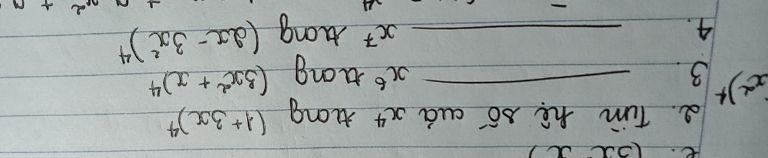 2. Tìm hệ số của x⁴ trong (1+3x)⁴
3. ——— x⁶ trong (3x²+x)⁴
4. ——— x⁷ trong (2x-3x²)⁴